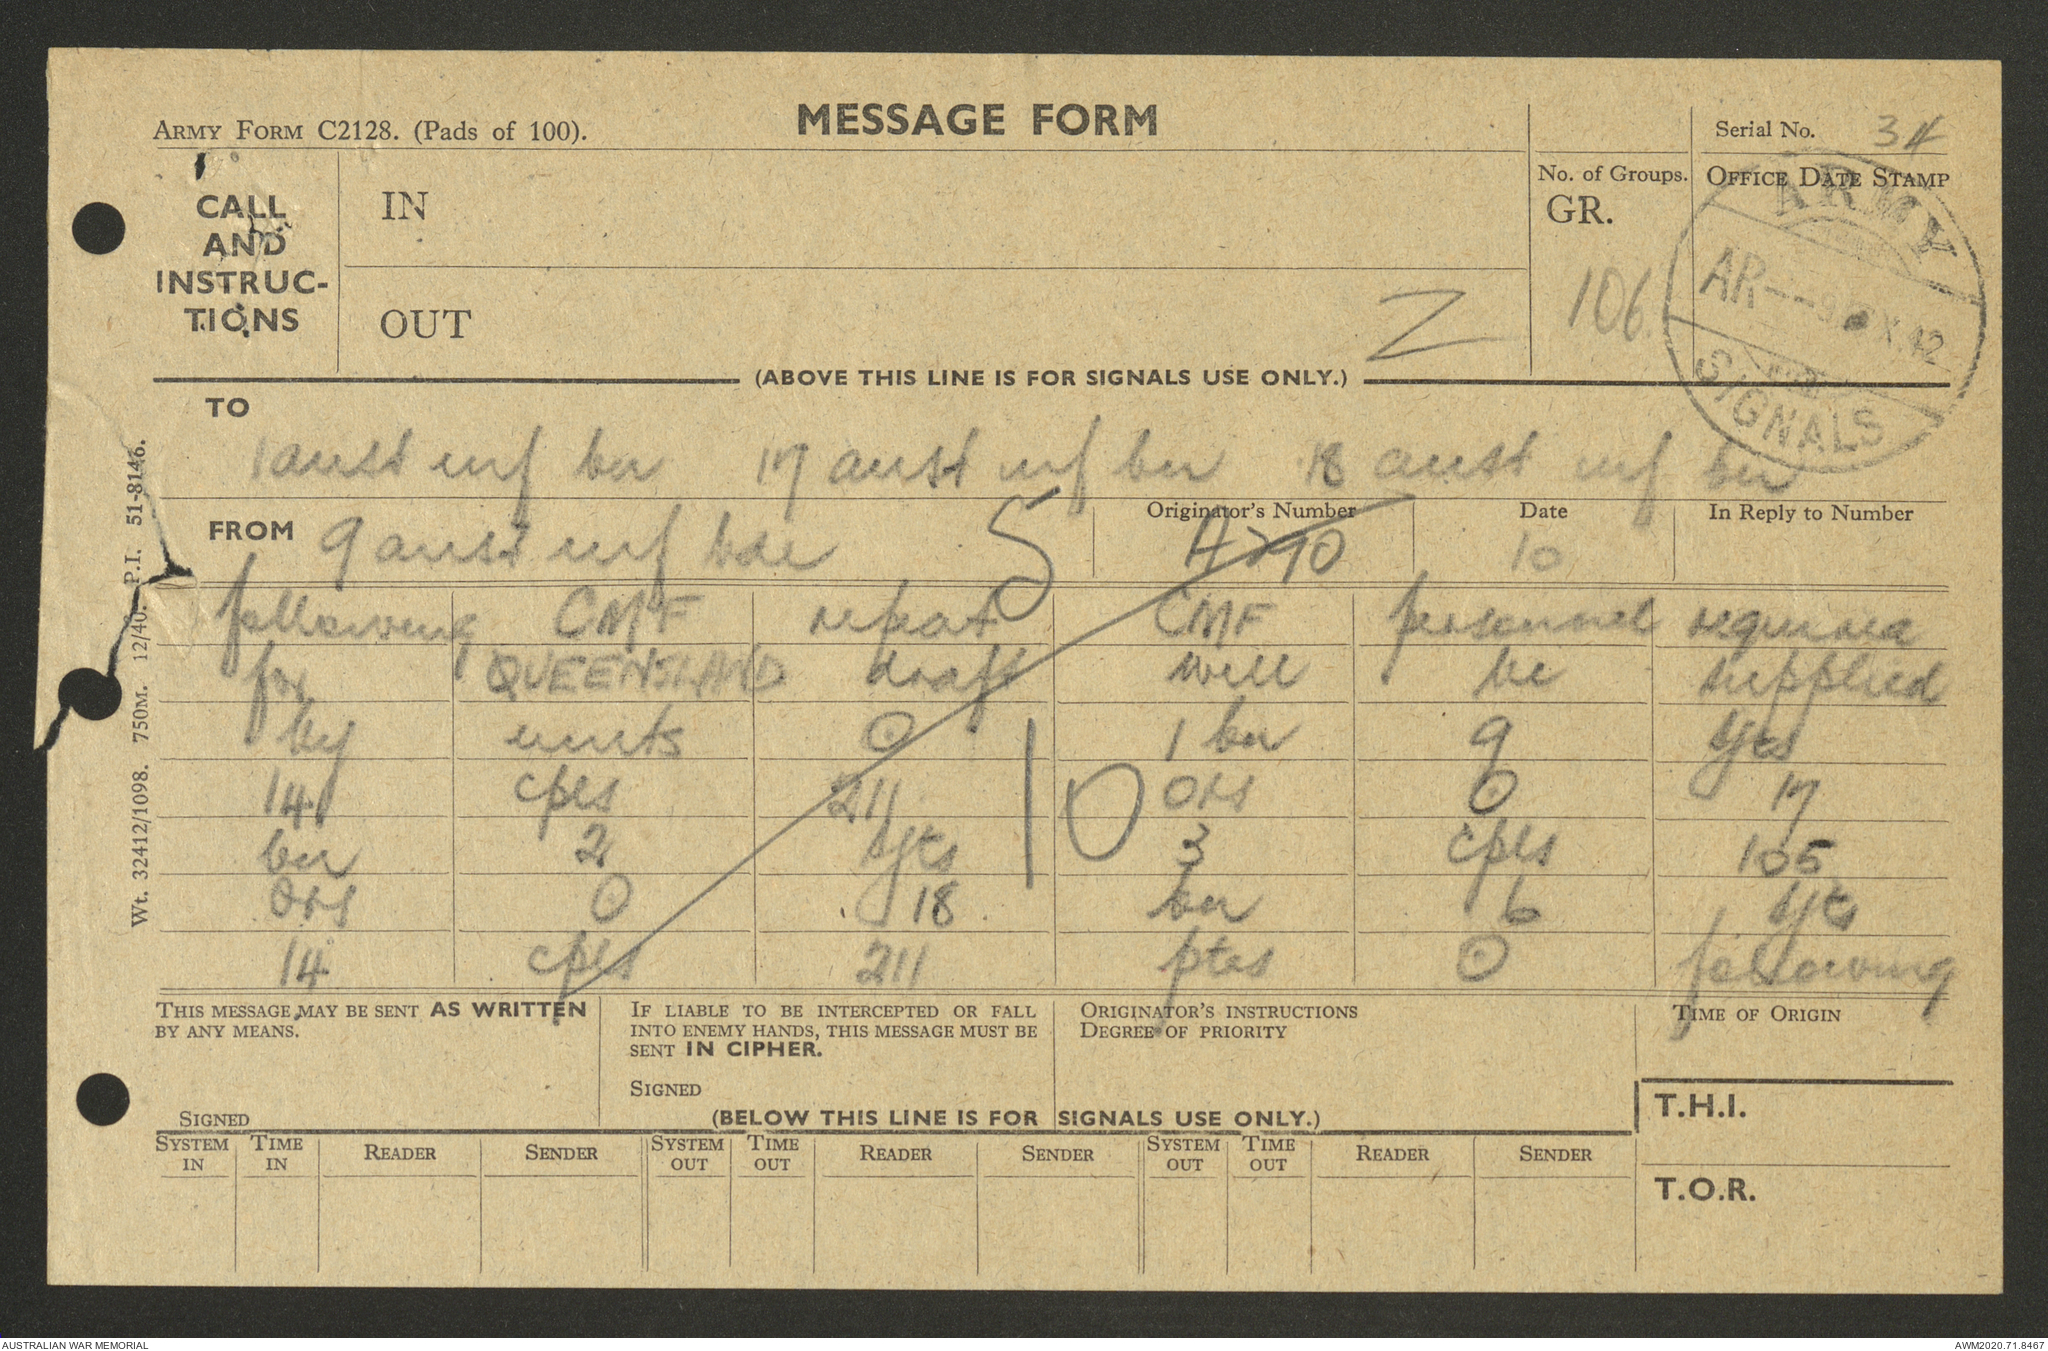 ARMY FORM C2128. (Pads of 100).
MESSAGE FORM
Serial No. 34
CALL
AND
INSTRUC-
TIONS
IN
OUT
Z
No. of Groups.
GR.
106
OFFICE DATE STAMP
ARMY
SIGNALS
(ABOVE THIS LINE IS FOR SIGNALS USE ONLY.)
TO
1 aust inf bn 17 aust inf bn 18 aust inf bn
FROM 9 aust inf bde
5
Originator's Number
A290
Date
10
In Reply to Number
following CMF repeat CMF personnel required
for QUEENSLAND draft will be supplied
by units ⊙ 1 bn 9 sjts
14 cpls 211 ors ⊙ 17
10
bn 2 sjts 3 cpls 105
ors ⊙ 18 bn 6 sjts
14 cpls 211 ptes ⊙ following
THIS MESSAGE MAY BE SENT AS WRITTEN
BY ANY MEANS.
SIGNED
IF LIABLE TO BE INTERCEPTED OR FALL
INTO ENEMY HANDS, THIS MESSAGE MUST BE
SENT IN CIPHER.
SIGNED
ORIGINATOR'S INSTRUCTIONS
DEGREE OF PRIORITY
TIME OF ORIGIN
(BELOW THIS LINE IS FOR SIGNALS USE ONLY.)
T.H.I.
T.O.R.
SYSTEM IN TIME IN READER SENDER SYSTEM OUT TIME OUT READER SENDER SYSTEM OUT TIME OUT READER SENDER
Wt. 32412/1098. 750M. 12/40. P.I. 51-8146.
AUSTRALIAN WAR MEMORIAL
AWM2020.71.8467